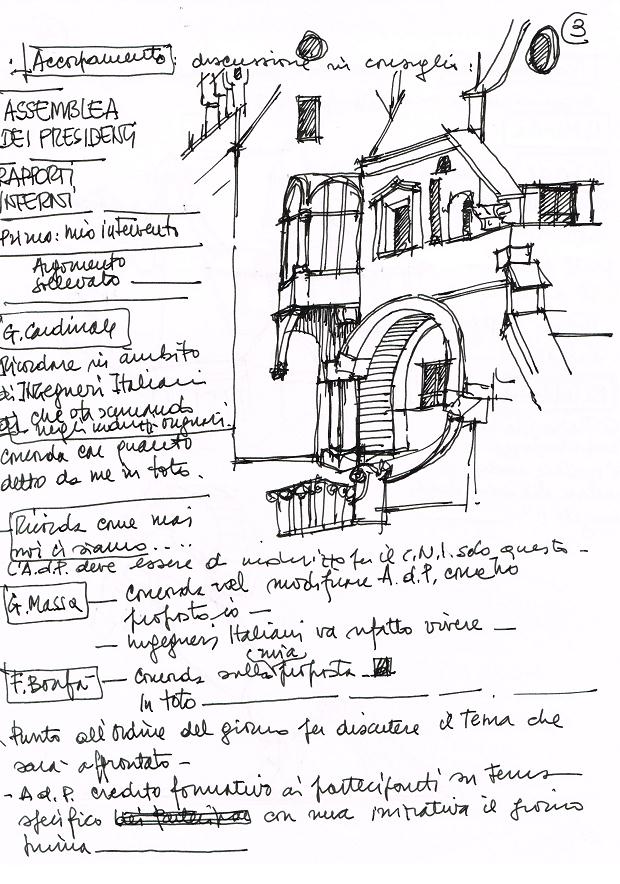 3
Accorpamento: discussione in consiglio:
ASSEMBLEA
DEI PRESIDENTI
RAPPORTI
INTERNI
Primo: mio intervento
Argomento
sollevato
G. Cardinale
Ricordare in ambito
di Ingegneri Italiani
che sta scemando
negli indirizzi originari.
concorda con quanto
detto da me in toto.
Ricorda come mai
noi ci siamo.....
L'A.d.P. deve essere di indirizzo per il C.N.I. solo questo -
G. Massa — concorda nel modificare A.d.P, come ho
proposto io —
— ingegneri Italiani va rifatto vivere —
(mia)
F. Bonfà — concorda sulla proposta
In toto
Punto all'Ordine del giorno per discutere il Tema che
sarà affrontato -
- A.d.P. credito formativo ai partecipanti su tema
specifico con una iniziativa il giorno
prima